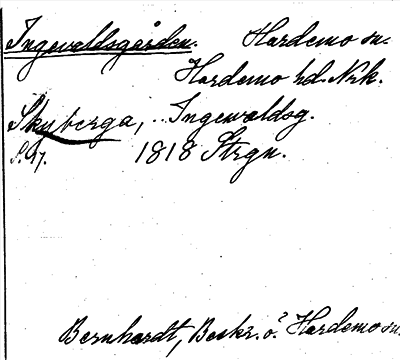 Ingevaldsgården. Hardemo sn.
Hardemo hd. Nrk.
Skyberga, .. Ingewaldsg.
S. 47. 1818 Strgn.
Bernhardt, Beskr. o? Hardemo sn.